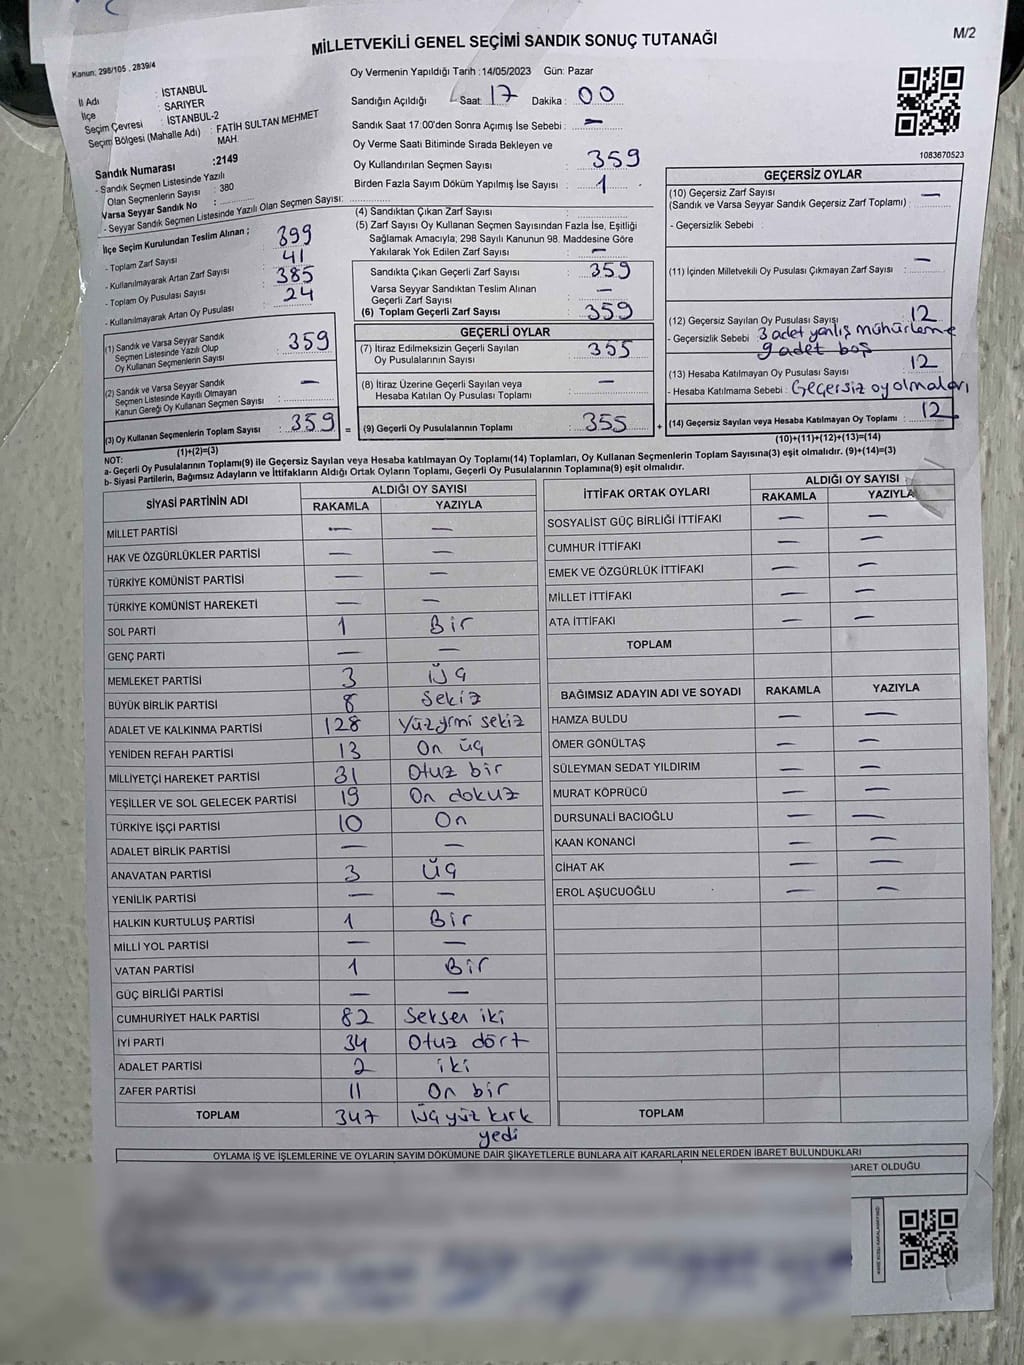 M/2
MİLLETVEKİLİ GENEL SEÇİMİ SANDIK SONUÇ TUTANAĞI
Kanun: 298/105 , 2839/4
Oy Vermenin Yapıldığı Tarih :14/05/2023 Gün: Pazar
İl Adı : İSTANBUL
İlçe : SARIYER
Seçim Çevresi : İSTANBUL-2
Seçim Bölgesi (Mahalle Adı) : FATİH SULTAN MEHMET MAH.
Sandık Numarası :2149
- Sandık Seçmen Listesinde Yazılı
Olan Seçmenlerin Sayısı : 380
Varsa Seyyar Sandık No :
- Seyyar Sandık Seçmen Listesinde Yazılı Olan Seçmen Sayısı:
Sandığın Açıldığı Saat: 17 Dakika : 00
Sandık Saat 17:00'den Sonra Açımış İse Sebebi : —
Oy Verme Saati Bitiminde Sırada Bekleyen ve
Oy Kullandırılan Seçmen Sayısı : 359
Birden Fazla Sayım Döküm Yapılmış İse Sayısı : 1
1083670523
İlçe Seçim Kurulundan Teslim Alınan ;
- Toplam Zarf Sayısı : 399
- Kullanılmayarak Artan Zarf Sayısı : 41
- Toplam Oy Pusulası Sayısı : 385
- Kullanılmayarak Artan Oy Pusulası : 24
(1) Sandık ve Varsa Seyyar Sandık
Seçmen Listesinde Yazılı Olup
Oy Kullanan Seçmenlerin Sayısı : 359
(2) Sandık ve Varsa Seyyar Sandık
Seçmen Listesinde Kayıtlı Olmayan
Kanun Gereği Oy Kullanan Seçmen Sayısı : —
(3) Oy Kullanan Seçmenlerin Toplam Sayısı : 359
(1)+(2)=(3)
(4) Sandıktan Çıkan Zarf Sayısı :
(5) Zarf Sayısı Oy Kullanan Seçmen Sayısından Fazla İse, Eşitliği
Sağlamak Amacıyla; 298 Sayılı Kanunun 98. Maddesine Göre
Yakılarak Yok Edilen Zarf Sayısı : —
Sandıkta Çıkan Geçerli Zarf Sayısı : 359
Varsa Seyyar Sandıktan Teslim Alınan
Geçerli Zarf Sayısı : —
(6) Toplam Geçerli Zarf Sayısı : 359
GEÇERLİ OYLAR
(7) İtiraz Edilmeksizin Geçerli Sayılan
Oy Pusulalarının Sayısı : 355
(8) İtiraz Üzerine Geçerli Sayılan veya
Hesaba Katılan Oy Pusulası Toplamı : —
= (9) Geçerli Oy Pusulalarının Toplamı : 355
GEÇERSİZ OYLAR
(10) Geçersiz Zarf Sayısı
(Sandık ve Varsa Seyyar Sandık Geçersiz Zarf Toplamı) : —
- Geçersizlik Sebebi :
(11) İçinden Milletvekili Oy Pusulası Çıkmayan Zarf Sayısı : —
(12) Geçersiz Sayılan Oy Pusulası Sayısı : 12
- Geçersizlik Sebebi : 3 adet yanlış mühürleme
9 adet boş
(13) Hesaba Katılmayan Oy Pusulası Sayısı : 12
- Hesaba Katılmama Sebebi : Geçersiz oy olmaları
+ (14) Geçersiz Sayılan veya Hesaba Katılmayan Oy Toplamı : 12
(10)+(11)+(12)+(13)=(14)
NOT:
a- Geçerli Oy Pusulalarının Toplamı(9) ile Geçersiz Sayılan veya Hesaba katılmayan Oy Toplamı(14) Toplamları, Oy Kullanan Seçmenlerin Toplam Sayısına(3) eşit olmalıdır. (9)+(14)=(3)
b- Siyasi Partilerin, Bağımsız Adayların ve İttifakların Aldığı Ortak Oyların Toplamı, Geçerli Oy Pusulalarının Toplamına(9) eşit olmalıdır.
SİYASİ PARTİNİN ADI ALDIĞI OY SAYISI
RAKAMLA YAZIYLA
MİLLET PARTİSİ — —
HAK VE ÖZGÜRLÜKLER PARTİSİ — —
TÜRKİYE KOMÜNİST PARTİSİ — —
TÜRKİYE KOMÜNİST HAREKETİ — —
SOL PARTİ 1 Bir
GENÇ PARTİ — —
MEMLEKET PARTİSİ 3 Üç
BÜYÜK BİRLİK PARTİSİ 8 Sekiz
ADALET VE KALKINMA PARTİSİ 128 Yüzyrmi sekiz
YENİDEN REFAH PARTİSİ 13 On üç
MİLLİYETÇİ HAREKET PARTİSİ 31 Otuz bir
YEŞİLLER VE SOL GELECEK PARTİSİ 19 On dokuz
TÜRKİYE İŞÇİ PARTİSİ 10 On
ADALET BİRLİK PARTİSİ — —
ANAVATAN PARTİSİ 3 Üç
YENİLİK PARTİSİ — —
HALKIN KURTULUŞ PARTİSİ 1 Bir
MİLLİ YOL PARTİSİ — —
VATAN PARTİSİ 1 Bir
GÜÇ BİRLİĞİ PARTİSİ — —
CUMHURİYET HALK PARTİSİ 82 Seksen iki
İYİ PARTİ 34 Otuz dört
ADALET PARTİSİ 2 iki
ZAFER PARTİSİ 11 On bir
TOPLAM 347 Üç yüz kırk
yedi
İTTİFAK ORTAK OYLARI ALDIĞI OY SAYISI
RAKAMLA YAZIYLA
SOSYALİST GÜÇ BİRLİĞİ İTTİFAKI — —
CUMHUR İTTİFAKI — —
EMEK VE ÖZGÜRLÜK İTTİFAKI — —
MİLLET İTTİFAKI — —
ATA İTTİFAKI — —
TOPLAM
BAĞIMSIZ ADAYIN ADI VE SOYADI RAKAMLA YAZIYLA
HAMZA BULDU — —
ÖMER GÖNÜLTAŞ — —
SÜLEYMAN SEDAT YILDIRIM — —
MURAT KÖPRÜCÜ — —
DURSUNALİ BACIOĞLU — —
KAAN KONANCİ — —
CİHAT AK — —
EROL AŞUCUOĞLU — —
TOPLAM
OYLAMA İŞ VE İŞLEMLERİNE VE OYLARIN SAYIM DÖKÜMÜNE DAİR ŞİKAYETLERLE BUNLARA AİT KARARLARIN NELERDEN İBARET BULUNDUKLARI
BARET OLDUĞU